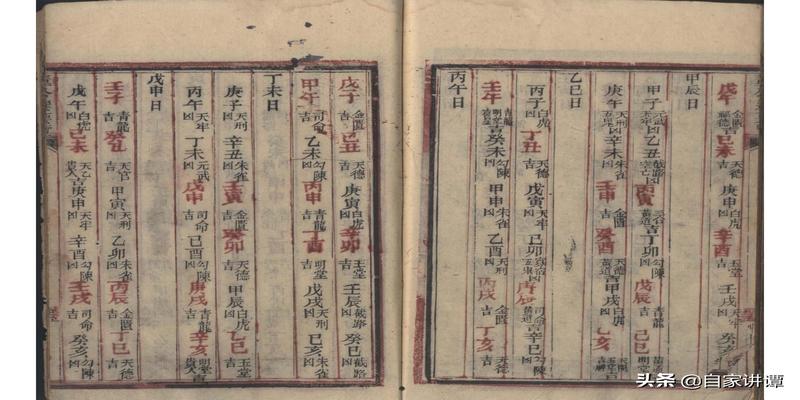 戊午 金匱福德吉 己未 天德吉 庚申 白虎凶 辛酉 玉堂吉 壬戌 天牢凶 癸亥
甲辰日
甲子 凶 乙丑 凶 丙寅 吉 丁卯 凶 戊辰 青龍吉 己巳 明堂吉
庚午 天刑 辛未 朱雀凶 壬申 金匱吉 癸酉 天德 吉 甲戌 白虎凶 乙亥 玉堂
乙巳日
丙子 白虎凶 丁丑 天德吉 戊寅 天牢凶 己卯 庚辰 司命 吉 辛巳 勾陳凶
壬午 青龍明堂吉 癸未 勾陳凶 甲申 朱雀凶 乙酉 天刑凶 丙戌 金匱吉 丁亥 天德吉
丙午日
戊子 金匱吉 己丑 天德吉 庚寅 白虎凶 辛卯 玉堂吉 壬辰 截路凶 癸巳 截路凶
甲午 司命吉 乙未 勾陳凶 丙申 青龍吉 丁酉 明堂吉 戊戌 天刑凶 己亥 朱雀凶
丁未日
庚子 天刑凶 辛丑 朱雀凶 壬寅 金匱吉 癸卯 天德吉 甲辰 白虎凶 乙巳 玉堂吉
丙午 天牢凶 丁未 元武凶 戊申 司命吉 己酉 勾陳凶 庚戌 青龍吉 辛亥 吉
戊申日
壬子 青龍吉 癸丑 天官吉 甲寅 天刑凶 乙卯 朱雀凶 丙辰 金匱吉 丁巳 天德吉
戊午 白虎凶 己未 天乙貴人吉 庚申 天牢凶 辛酉 勾陳凶 壬戌 司命吉 癸亥 勾陳凶
头条 @自家讲谭